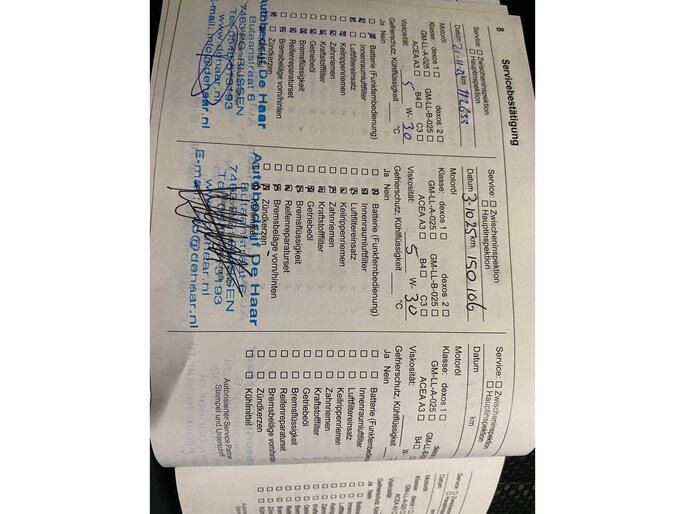 8
Servicebestätigung
Service: □ Zwischeninspektion
□ Hauptinspektion
Datum km 112633
Motoröl
Klasse: dexos 1 □ dexos 2 □
GM-LL-A-025 □ GM-LL-B-025 □
ACEA A3 □ B4 □ C3 □
Viskosität: 5 W- 30
Gefrierschutz, Kühlflüssigkeit °C
Ja Nein
Batterie (Funkfernbedienung)
Innenraumluftfilter
Luftfiltereinsatz
Keilrippenriemen
Zahnriemen
Kraftstofffilter
Getriebeöl
Bremsflüssigkeit
Reifenreparaturset
Bremsbeläge vorn/hinten
Zündkerzen
Autobedrijf De Haar
Butaanstraat 6
7463 PG RIJSSEN
www.dehaar.nl
E-mail: info@dehaar.nl
Service: □ Zwischeninspektion
□ Hauptinspektion
Datum 3-10-25 km 150.106
Motoröl
Klasse: dexos 1 □ dexos 2 □
GM-LL-A-025 □ GM-LL-B-025 □
ACEA A3 □ B4 □ C3 □
Viskosität: 5 W- 30
Gefrierschutz, Kühlflüssigkeit °C
Ja Nein
Batterie (Funkfernbedienung)
Innenraumluftfilter
Luftfiltereinsatz
Keilrippenriemen
Zahnriemen
Kraftstofffilter
Getriebeöl
Bremsflüssigkeit
Reifenreparaturset
Bremsbeläge vorn/hinten
Zündkerzen
Autobedrijf De Haar
Service: □ Zwischeninspektion
□ Hauptinspektion
Datum km
Motoröl
Klasse: dexos 1 □
GM-LL-A-025 □
ACEA A3 □ B4 □
Viskosität:
Gefrierschutz, Kühlflüssigkeit
Ja Nein
□ □ Batterie (Funkfernbedien
□ □ Innenraumluftfilter
□ □ Luftfiltereinsatz
□ □ Keilrippenriemen
□ □ Zahnriemen
□ □ Kraftstofffilter
□ □ Getriebeöl
□ □ Bremsflüssigkeit
□ □ Reifenreparaturset
□ □ Bremsbeläge vorn/hinten
□ □ Zündkerzen
□ □ Kühlmittel
Autorisierter Service Partner
Stempel und Unterschrift